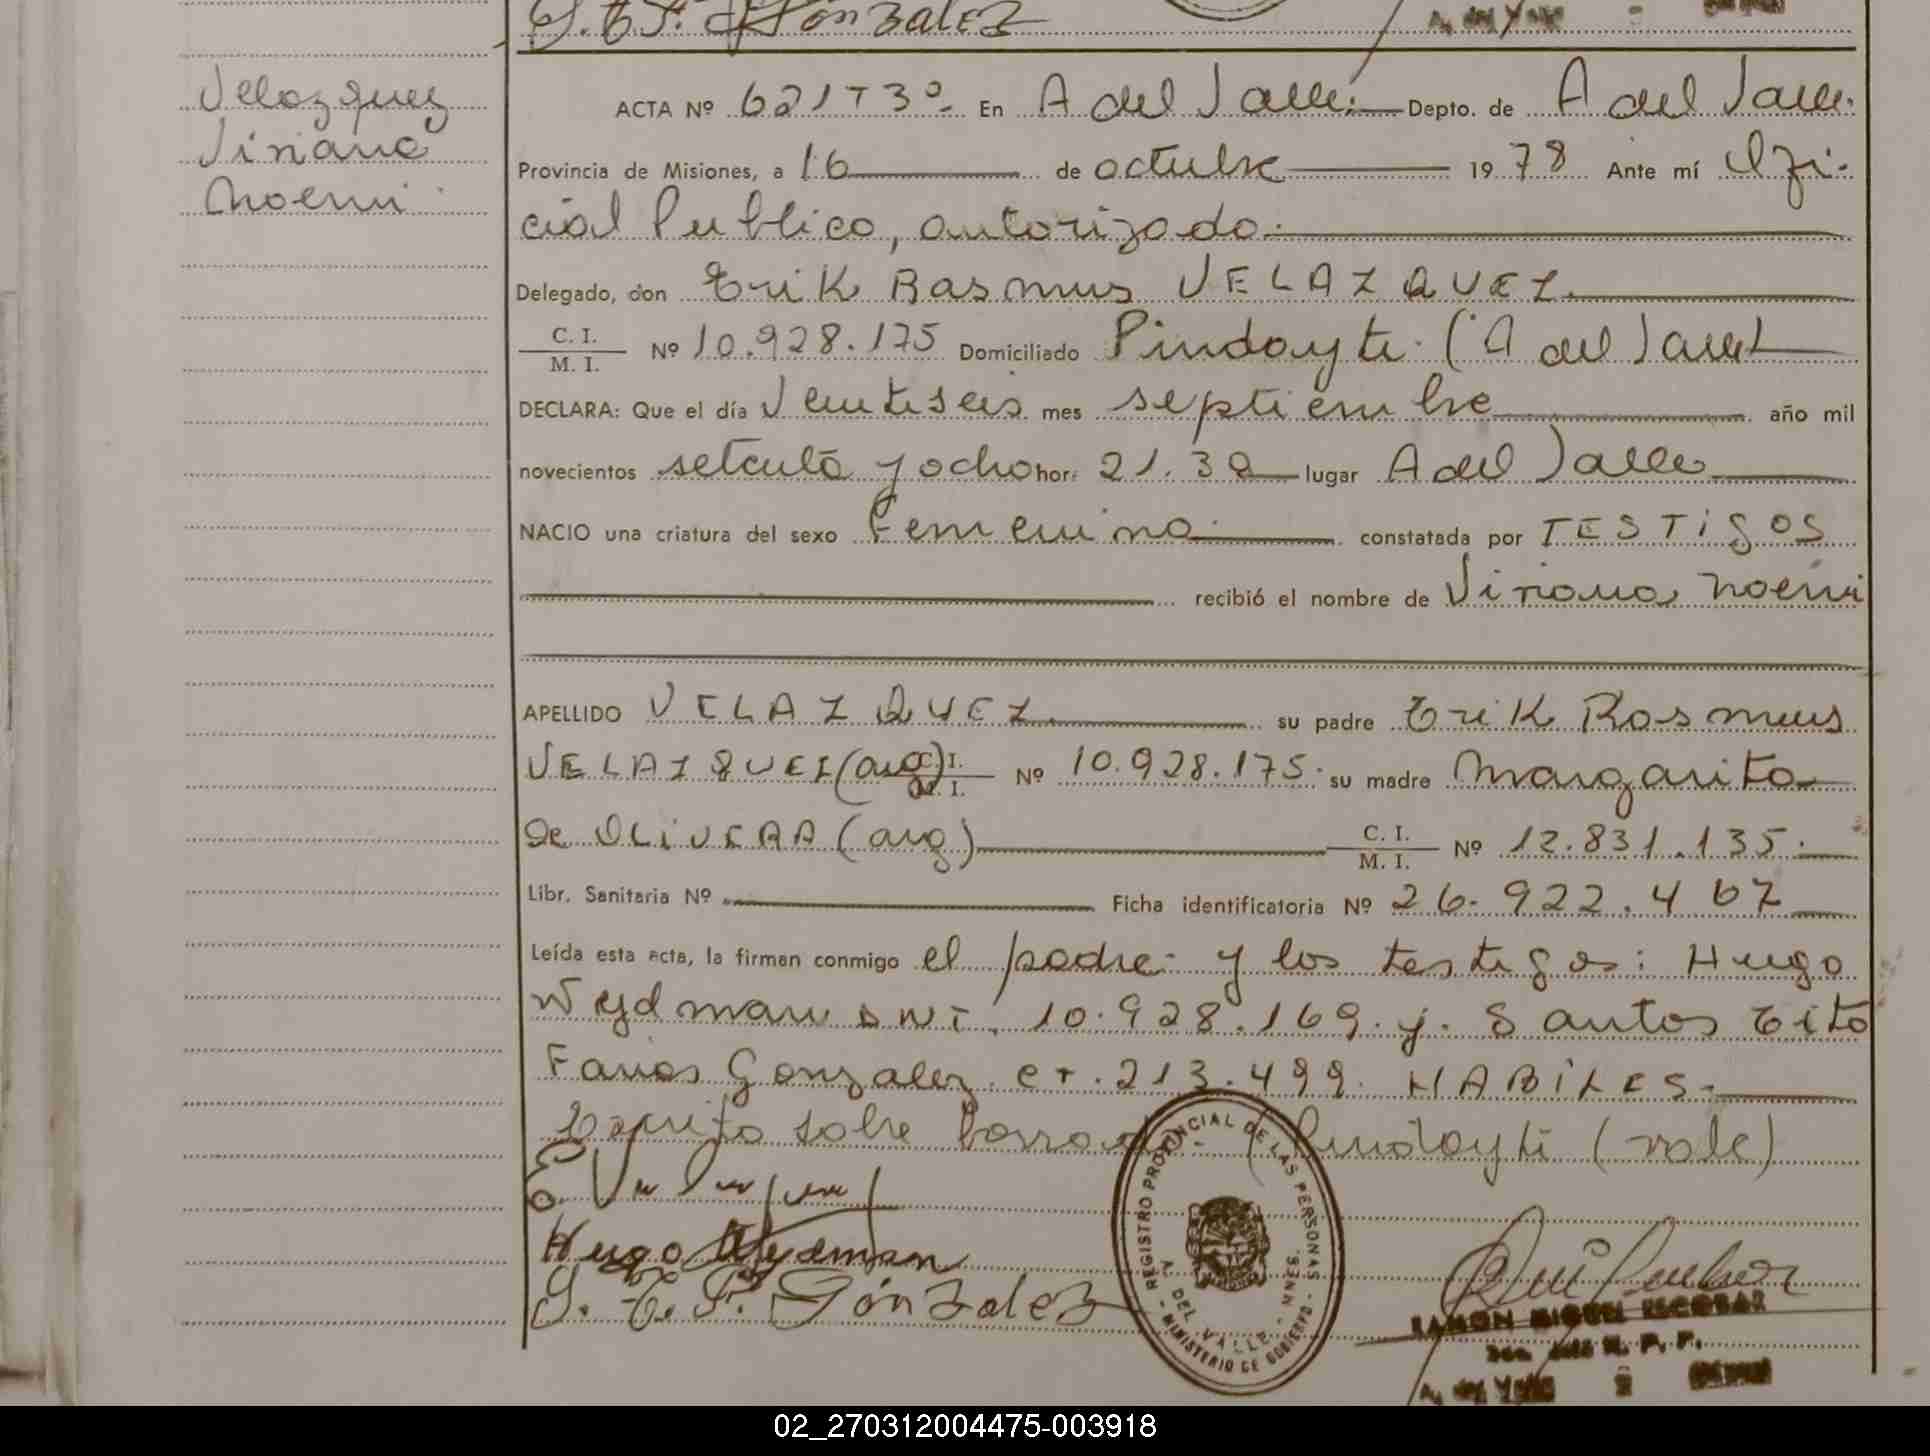 S. T. F. González
Velazquez
Viviana
Noemi
ACTA Nº 621 T 3º En A del Valle Depto. de A del Valle
Provincia de Misiones, a 16 de octubre 1978 Ante mí Ofi-
cial Publico, autorizado
Delegado, don Erik Rasmus VELAZQUEZ
C. I. / M. I. Nº 10.928.175 Domiciliado Pindayti (A del Valle)
DECLARA: Que el día Veintiseis mes septiembre año mil
novecientos setenta y ocho hor: 21.30 lugar A del Valle
NACIO una criatura del sexo Femenino constatada por TESTIGOS
recibió el nombre de Viviana Noemi
APELLIDO VELAZQUEZ su padre Erik Rasmus
VELAZQUEZ (arg) C. I. / M. I. Nº 10.928.175. su madre Margarita
De OLIVERA (arg) C. I. / M. I. Nº 12.831.135.
Libr. Sanitaria Nº Ficha identificatoria Nº 26.922.467
Leída esta acta, la firman conmigo el padre y los testigos: Hugo
Wydman DNI. 10.928.169. y. Santos Tito
Farios Gonzalez. C I. 213.499. HABILES.
Escrito sobre borrado - (Pindayti (vale)
Hugo Wydman
S. T. F. González
REGISTRO PROVINCIAL DE LAS PERSONAS
A. DEL VALLE - MNES.
- MINISTERIO DE GOBIERNO -
RAMON MIGUEL ESCOBAR
R. P. P.
A. del Valle
02_270312004475-003918